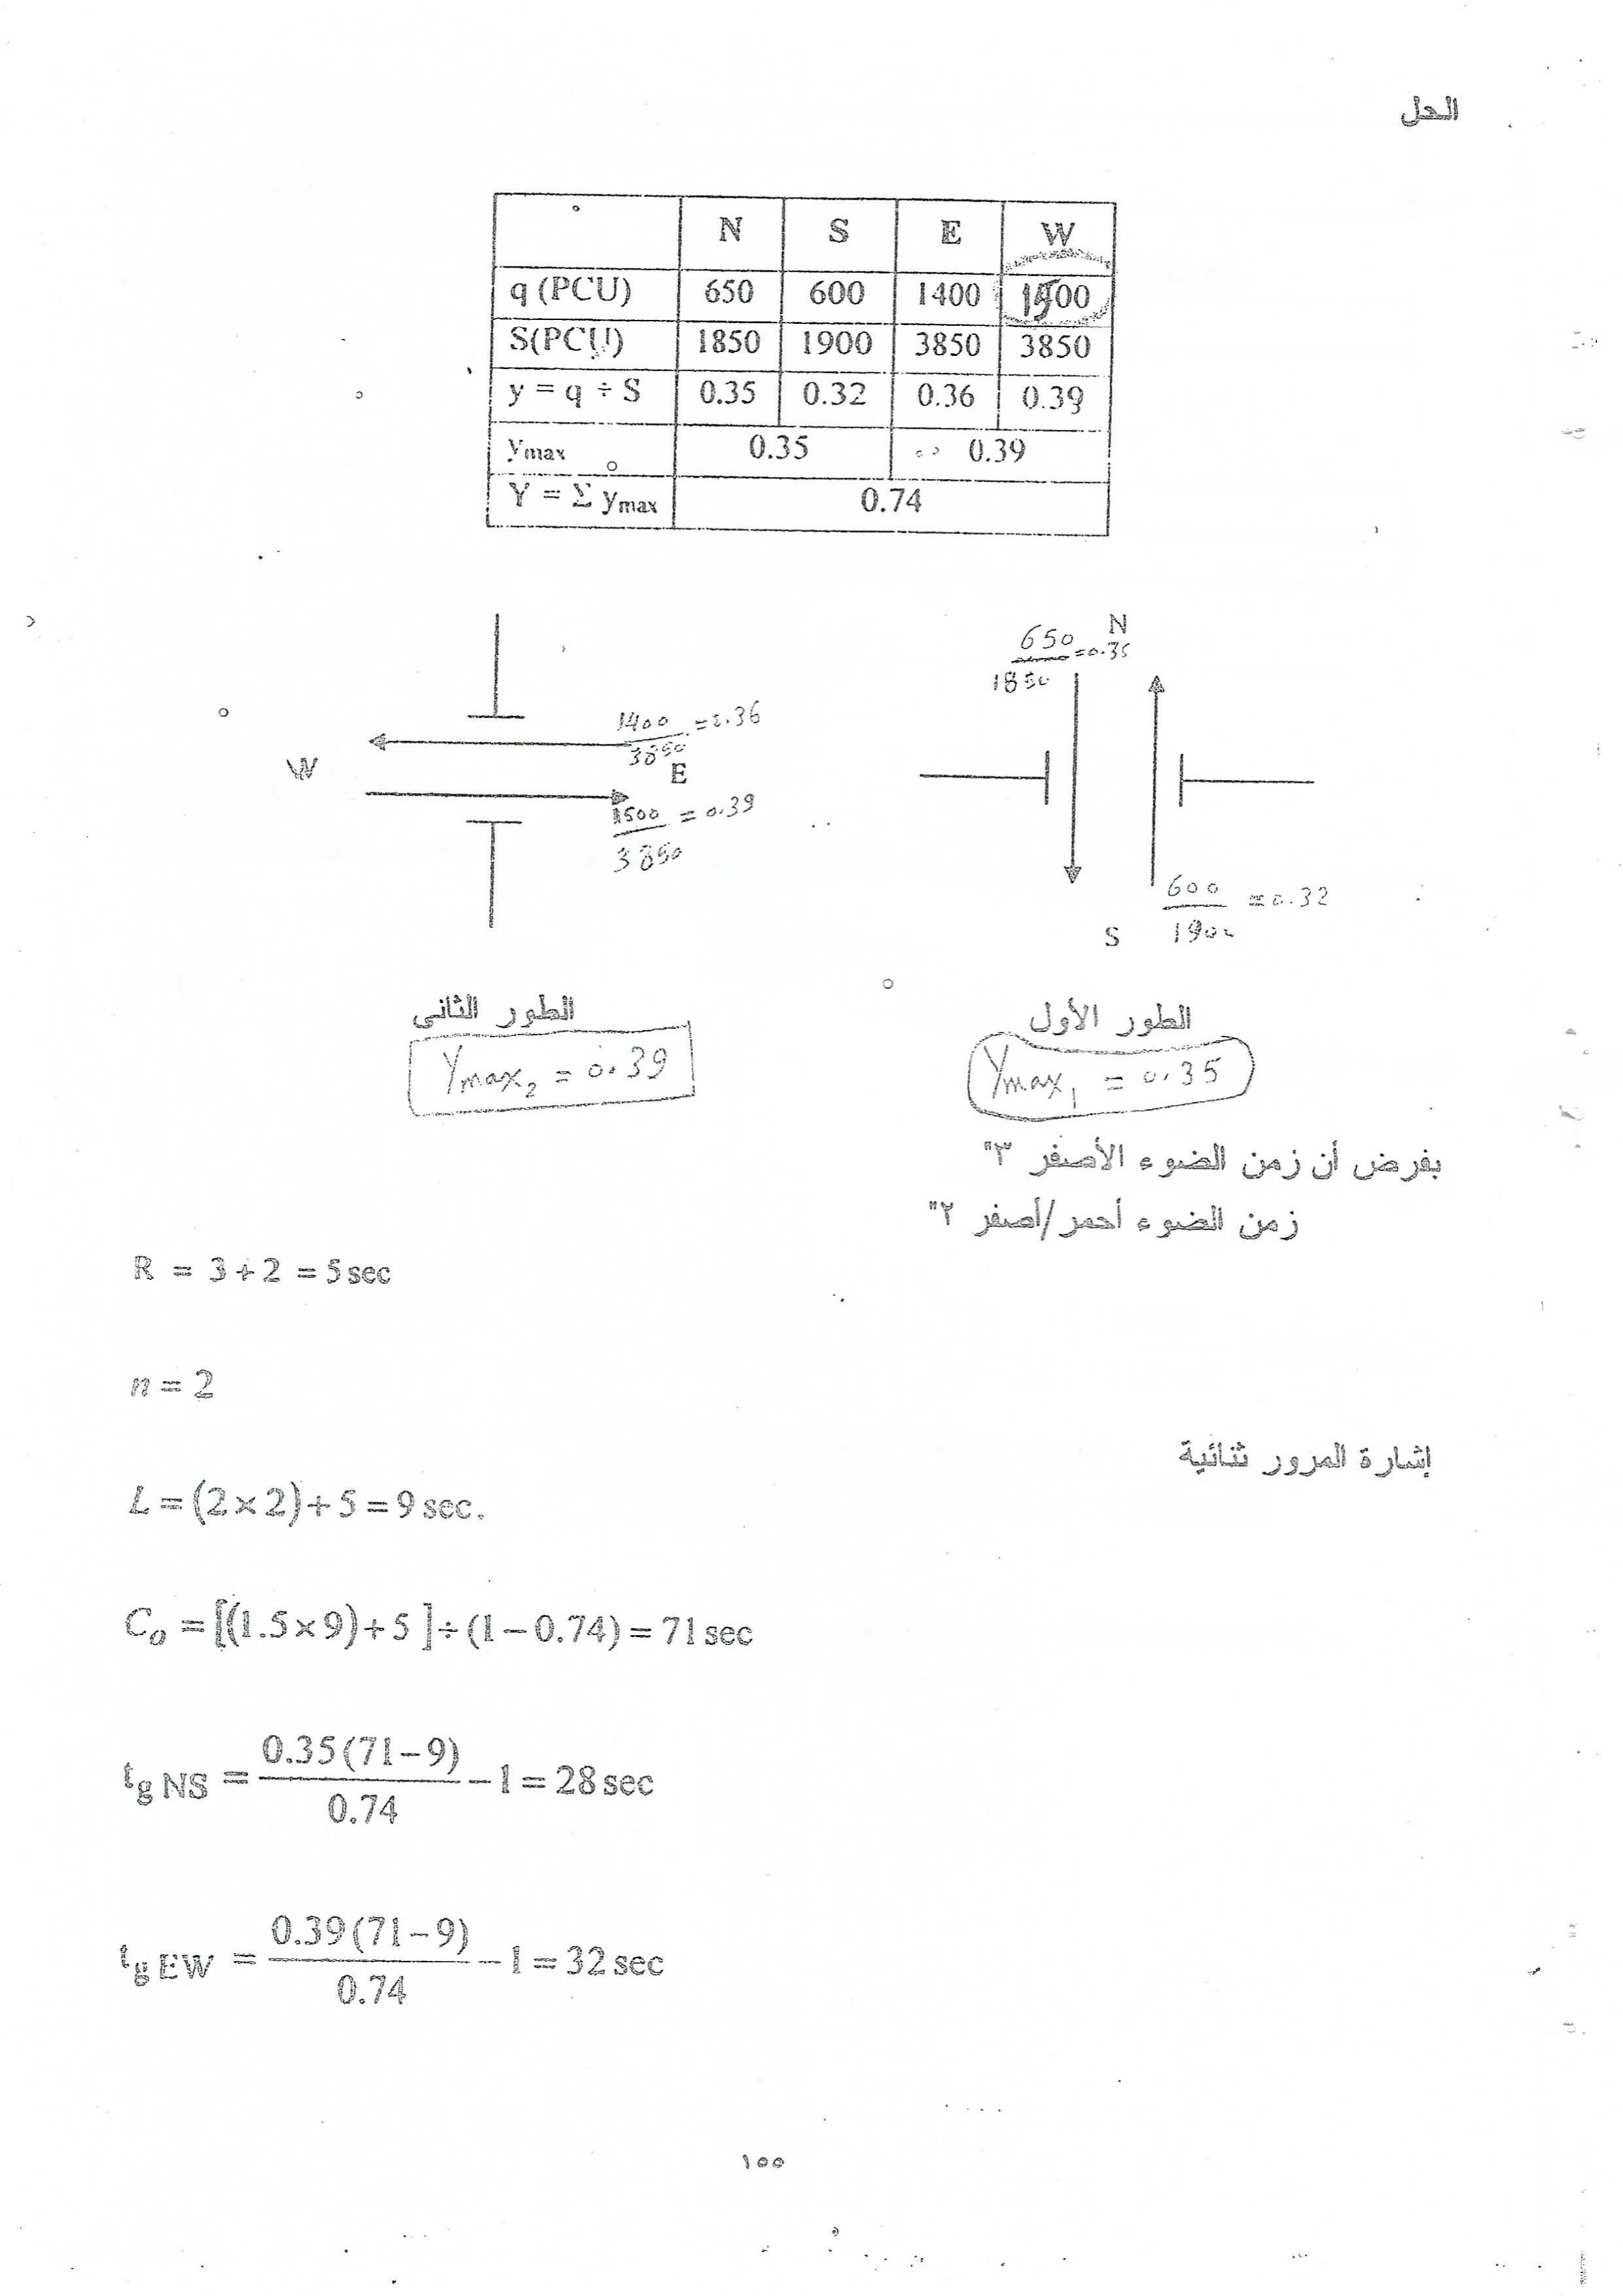 الحل
N S E W
q (PCU) 650 600 1400 1500
S(PCU) 1850 1900 3850 3850
y = q ÷ S 0.35 0.32 0.36 0.39
ymax 0.35 0.39
Y = Σ ymax 0.74
N
650/1850 = 0.35
1400/3850 = 0.36
W
E
1500/3850 = 0.39
600/1900 = 0.32
S
الطور الأول
الطور الثانى
Ymax1 = 0.35
Ymax2 = 0.39
بفرض أن زمن الضوء الأصفر ٣"
زمن الضوء أحمر/أصفر ٢"
R = 3+2 = 5 sec
n = 2
إشارة المرور ثنائية
L = (2×2)+5 = 9 sec.
Co = [(1.5×9)+5 ]÷(1−0.74) = 71 sec
tg NS = 0.35(71−9)/0.74 −1 = 28 sec
tg EW = 0.39(71−9)/0.74 −1 = 32 sec
١٥٥